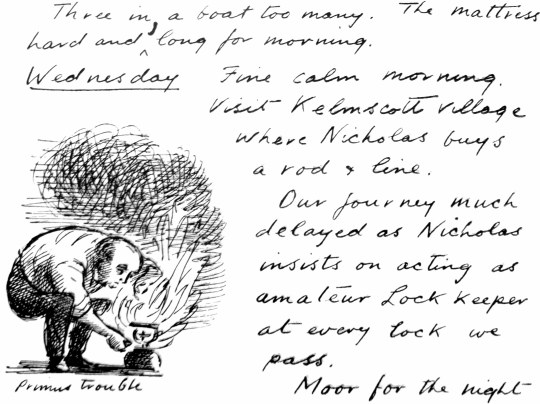 Three in a boat too many. The mattress
hard and, long for morning.
Wednesday Fine calm morning.
Visit Kelmscott village
where Nicholas buys
a rod & line.
Our journey much
delayed as Nicholas
insists on acting as
amateur Lock Keeper
at every lock we
pass.
Moor for the night
Primus trouble